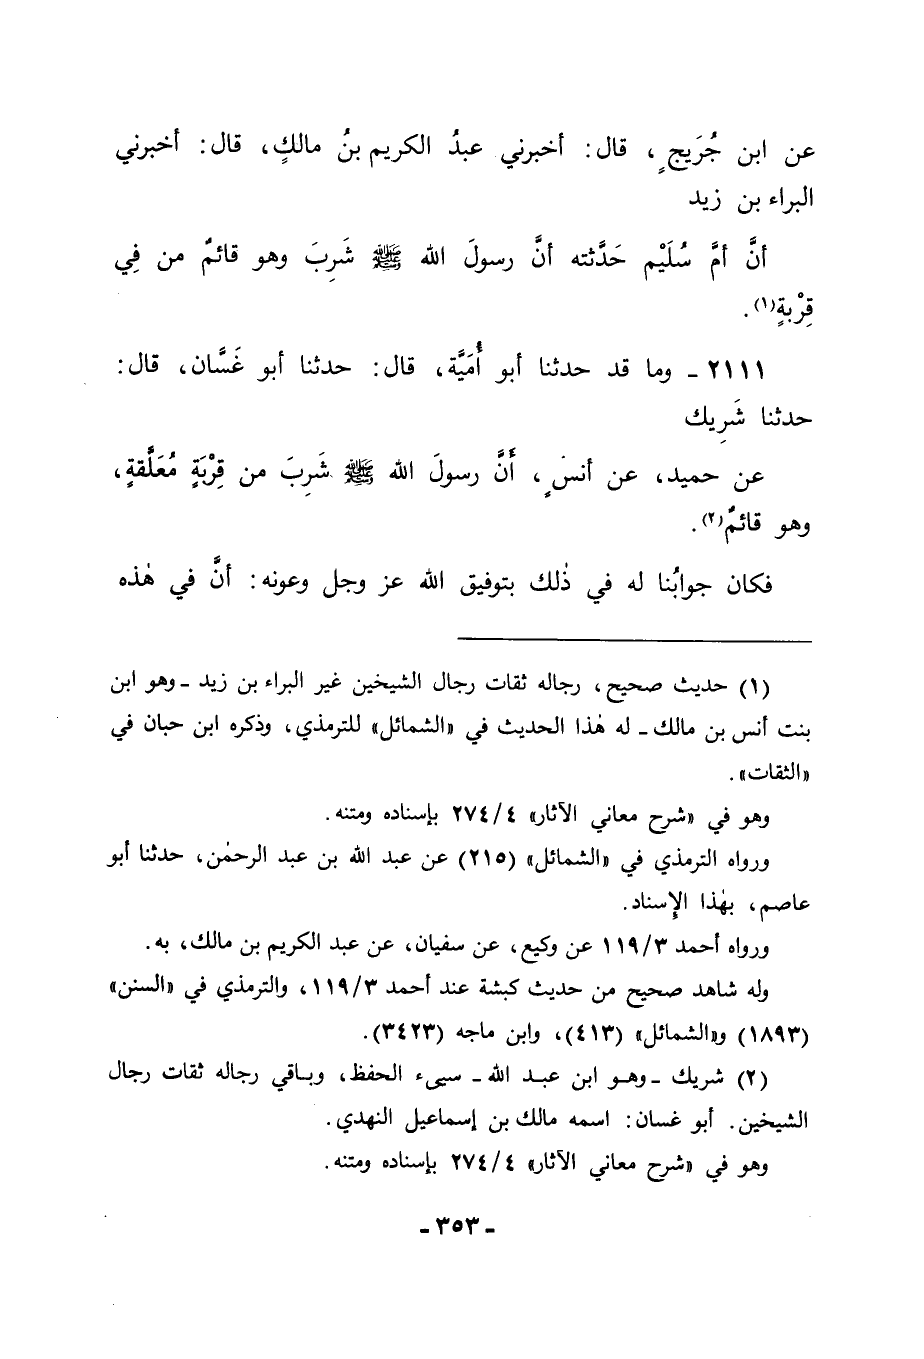 عن ابن جُرَيجٍ، قال: أخبرني عبدُ الكريم بنُ مالكٍ، قال: أخبرني
البراء بن زيد
أنَّ أمَّ سُلَيْم حَدَّثته أنَّ رسولَ الله ﷺ شَرِبَ وهو قائمٌ من فِي
قِرْبةٍ(١).
٢١١١ ـ وما قد حدثنا أبو أُمَيَّة، قال: حدثنا أبو غَسَّان، قال:
حدثنا شَرِيك
عن حميد، عن أنسٍ، أَنَّ رسولَ الله ﷺ شَرِبَ من قِرْبَةٍ مُعَلَّقةٍ،
وهو قائمٌ(٢).
فكان جوابُنا له في ذٰلك بتوفيق الله عز وجل وعونه: أنَّ في هٰذه
(١) حديث صحيح، رجاله ثقات رجال الشيخين غير البراء بن زيد ـ وهو ابن
بنت أنس بن مالك ـ له هٰذا الحديث في «الشمائل» للترمذي، وذكره ابن حبان في
«الثقات».
وهو في «شرح معاني الآثار» ٢٧٤/٤ بإسناده ومتنه.
ورواه الترمذي في «الشمائل» (٢١٥) عن عبد الله بن عبد الرحمٰن، حدثنا أبو
عاصم، بهٰذا الإسناد.
ورواه أحمد ١١٩/٣ عن وكيع، عن سفيان، عن عبد الكريم بن مالك، به.
وله شاهد صحيح من حديث كبشة عند أحمد ١١٩/٣، والترمذي في «السنن»
(١٨٩٣) و«الشمائل» (٤١٣)، وابن ماجه (٣٤٢٣).
(٢) شريك ـ وهو ابن عبد الله ـ سيىء الحفظ، وباقي رجاله ثقات رجال
الشيخين. أبو غسان: اسمه مالك بن إسماعيل النهدي.
وهو في «شرح معاني الآثار» ٢٧٤/٤ بإسناده ومتنه.
ـ ٣٥٣ ـ